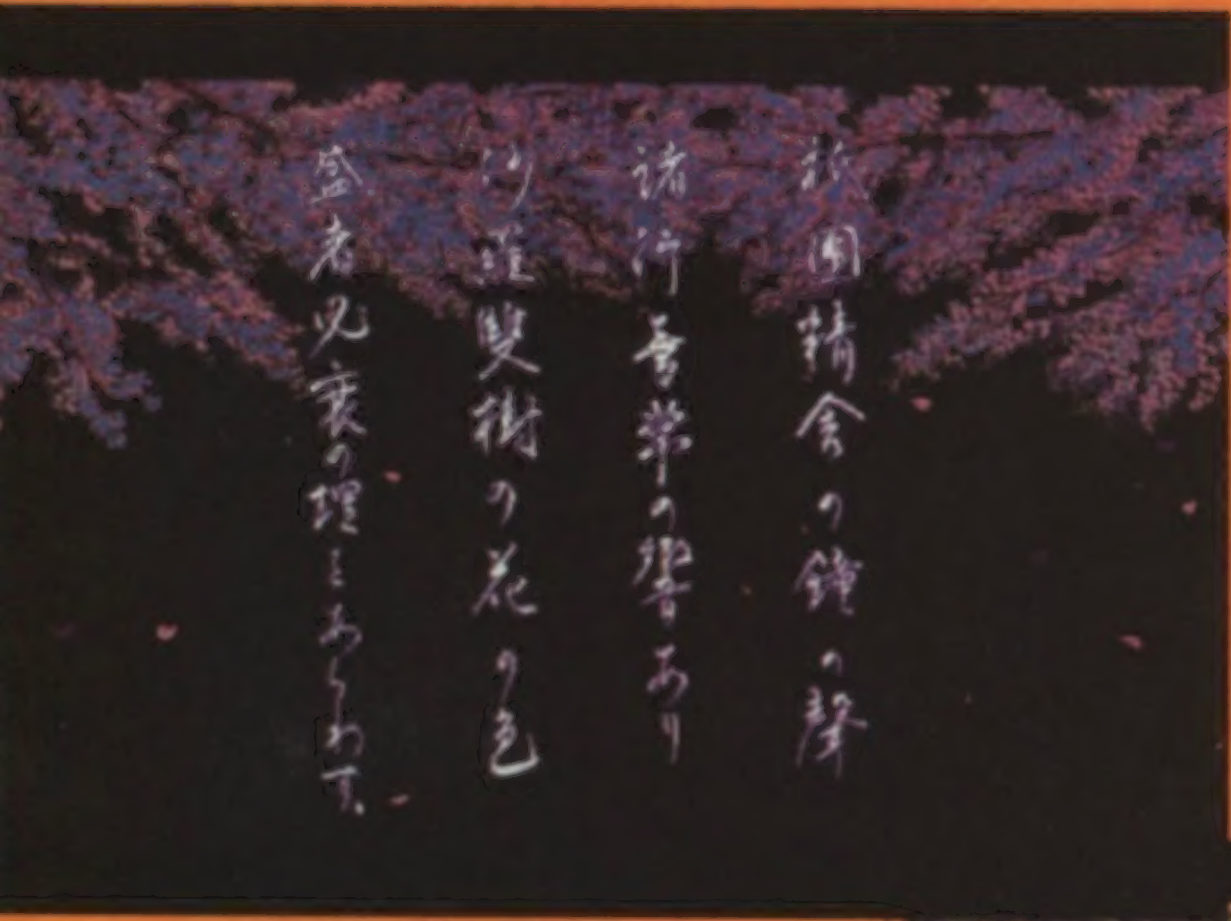 祇園精舎の鐘の聲
諸行無常の響あり
沙羅雙樹の花の色
盛者必衰の理をあらわす